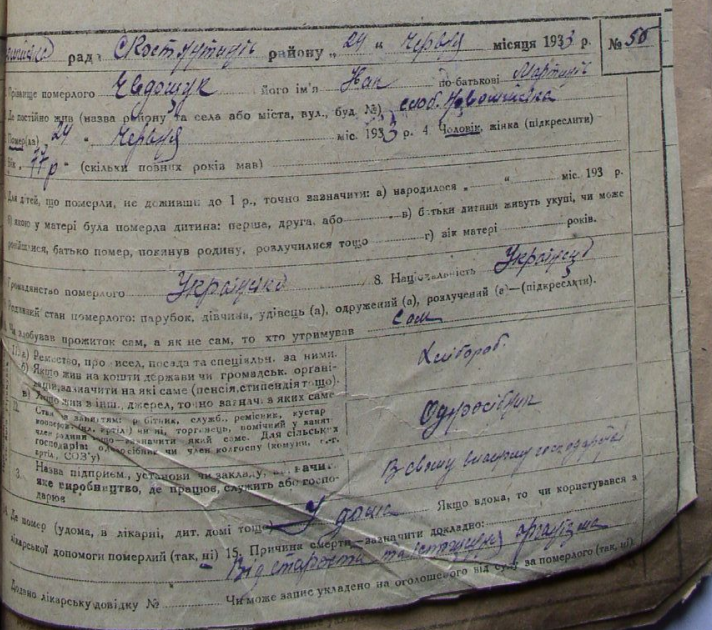 рад. Скост району „ 24 “ Червня місяця 1933 р. № 50
Прізвище померлого Євдощук Його ім'я Іван по-батькові Мартинів
Де постійно жив (назва району та села або міста, вул., буд. №) слоб.
Помер(ла) 24 „ Червня міс. 1933 р. 4. Чоловік, жінка (підкреслити)
Вік „ 77 р “ (скільки повних років мав)
Для дітей, що померли, не доживши до 1 р., точно зазначити: а) народилося „ “ міс. 193 р.
б) якою у матері була померла дитина: перше, друга, або в) батьки дитини живуть укупі, чи може
розійшлися, батько помер, покинув родину, розлучилися тощо г) вік матері років.
Громадянство померлого 8. Національність
Родинний стан померлого: парубок, дівчина, удівець (а), одружений (а), розлучений (а)—(підкреслити).
Чи здобував прожиток сам, а як не сам, то хто утримував сам
а) Ремество, професія, посада та спеціяльн. за ними.
б) Якщо жив на кошти держави чи громадськ. органі-
зацій, зазначити на які саме (пенсія, стипендія тощо).
в) Якщо жив з інш. джерел, точно вагзнач. з яких саме
Хлібороб.
Стан в занятті: робітник, служб., ремісник, кустар
член родини якщо—зазначити який саме. Для сільських
господарів: одноосібник чи член колгоспу (комуни, с.-г.
артіл., СОЗ'у)
Одноосібник
Назва підприєм., установи чи закладу,
яке виробництво, де працював, служить або госпо-
дарює
В своєму власному господарстві
Де помер (удома, в лікарні, дит. домі тощо) У дома Якщо вдома, то чи користувався з
лікарської допомоги померлий (так, ні) 15. Причина смерти—зазначити докладно:
Від старости та истощения організма
Додано лікарську довідку № Чи може запис укладено на оголошеного від суду за померлого (так, ні)